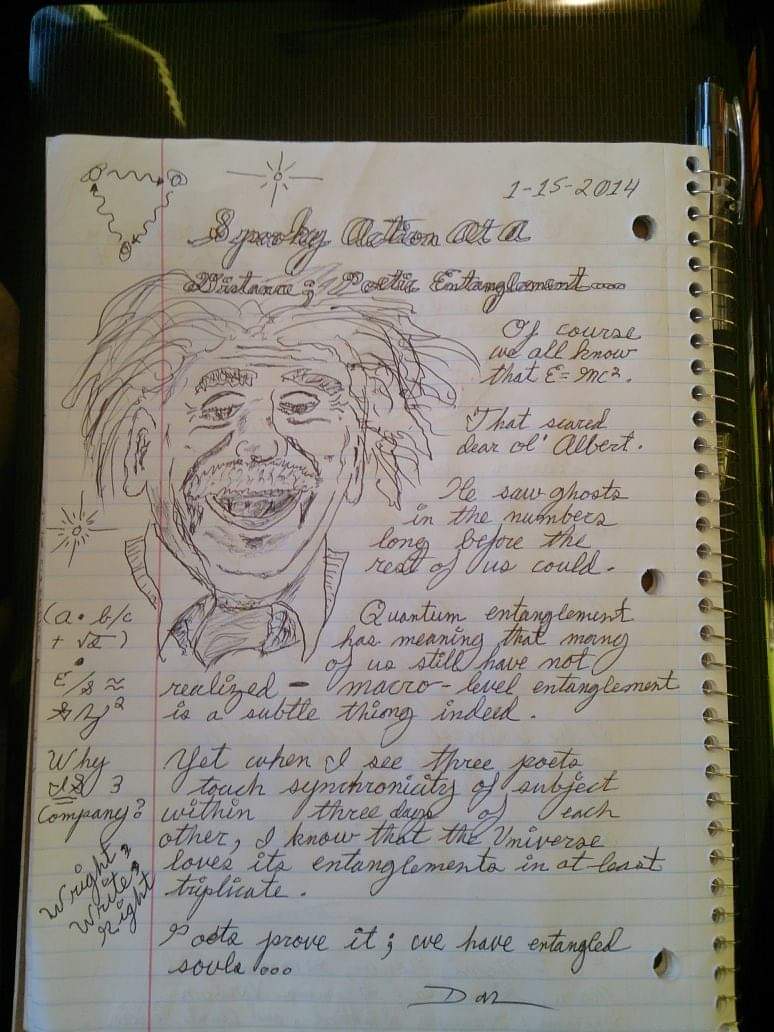 1-15-2014
Spooky Action At A
Distance; Poetic Entanglement...
Of course
we all know
that E=mc².
That scared
dear ol' Albert.
He saw ghosts
in the numbers
long before the
rest of us could.
Quantum entanglement
has meaning that many
of us still have not
realized - macro-level entanglement
is a subtle thiong indeed.
Yet when I see three poets
touch synchronicity of subject
within three days of each
other, I know that the Universe
loves its entanglements in at least
triplicate.
Poets prove it; we have entangled
souls...
(a • b/c
Why
IS 3
Company?
Wright,
Write,
Right